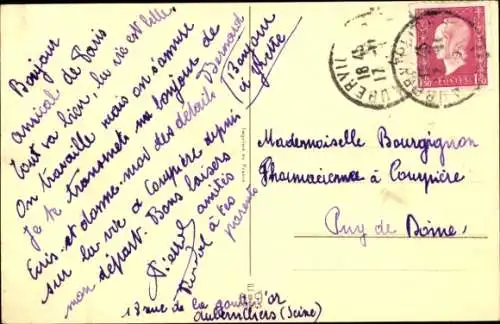 Bonjour
amical de Paris
Tout va bien, la vie est belle.
On travaille mais on s'amuse
Je te transmets un bonjour de Bernard
Ecris et donne-moi des détails
sur la vie à Courpière depuis
mon départ. Bons baisers
Pierrot
amitiés
à tes
parents
(Bonjour
à
13 rue de la goutte d'or
Aubervilliers (Seine)
Imprimé en France
18 45
17 11
POSTES
1f50
Mademoiselle Bourgignon
Pharmacienne à Courpière
Puy de Dôme.